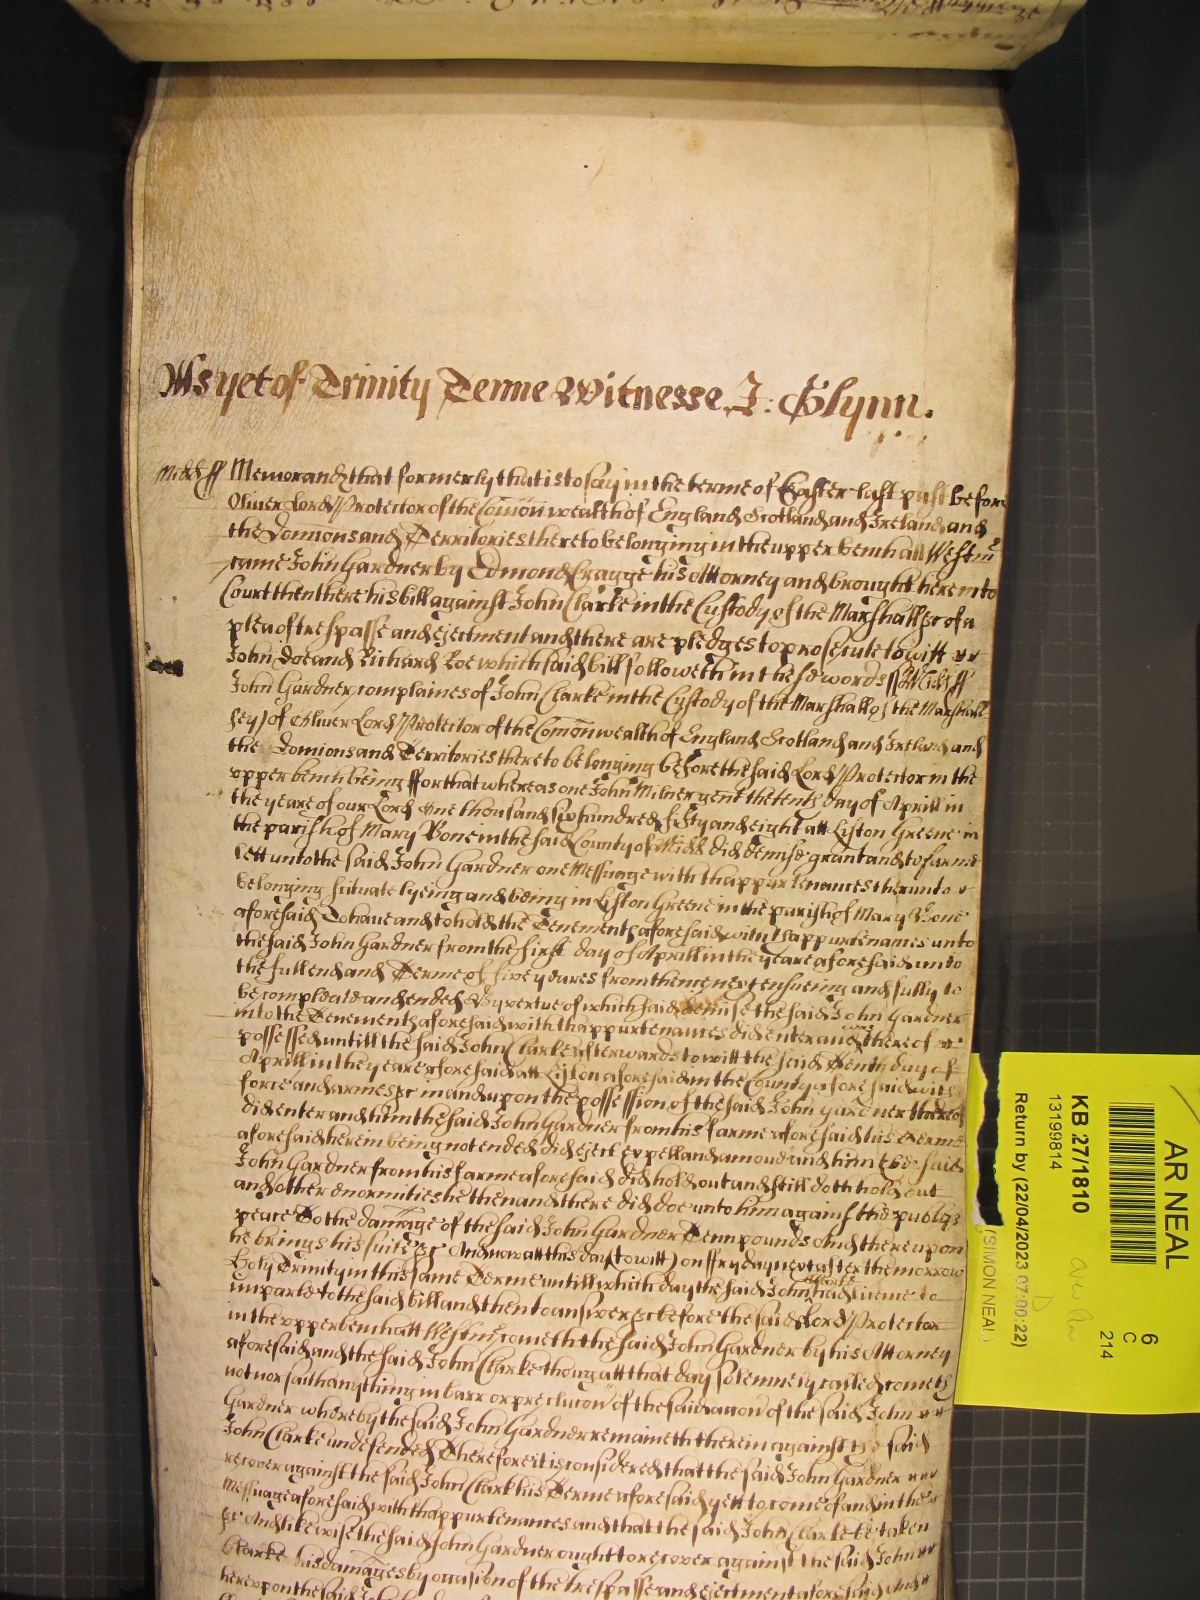 As yet of Trinity Terme Witnesse J: Glynn.
Midds ss Memorand that formerly that is to say in the terme of Easter last past before
Oliver Lord Protector of the Comon wealth of England Scotland and Ireland and
the Domions and Territories thereto belonging in the upper bench att Westm
came John Gardner by Edmond Cragge his Attorney and brought here into
Court then there his bill against John Clarke in the Custody of the Marshall &c of a
plea of trespasse and ejectment and there are pledges to prosecute to witt
John Doe and Richard Roe which said bill followeth in these words ss Midds ss
John Gardner complaines of John Clarke in the Custody of the Marshall of the Marshall
sey of Oliver Lord Protector of the Comon wealth of England Scotland and Ireland and
the Domions and Territories thereto belonging before the said Lord Protector in the
upper bench being ffor that whereas one John Milner gent the tenth day of Aprill in
the yeare of our Lord one thousand six hundred fifty and eight att Liston Greene in
the parish of Mary Bone in the said County of Midds did demise grant and to farme
lett unto the said John Gardner one Messuage with thappurtenances therunto
belonging scituate lyeing and being in Liston Greene in the parish of Mary Bone
aforesaid To have and to hold the Tenement aforesaid with thappurtenances unto
the said John Gardner from the first day of Aprill in the yeare aforesaid unto
the full end and Terme of five yeares from thence next ensueing and fully to
be compleate and ended By vertue of which said demise the said John Gardner
into the Tenement aforesaid with thappurtenances did enter and was thereof
possessed untill the said John Clarke afterwards to witt the said Tenth day of
Aprill in the yeare aforesaid att Liston aforesaid in the County aforesaid with
force and armes &c in and upon the possession of the said John Gardner thereof
did enter and him the said John Gardner from his farme aforesaid his Terme
aforesaid herein being not ended did eject expell and amoud and him the said
John Gardner from his farme aforesaid did hold out and still doth hold out
and other enormities he then and there did doe unto him against the publiqs
peace To the damage of the said John Gardner Tenn pounds And thereupon
he brings his suite &c And now att this day (to witt) on ffryday next after the morrow
Holy Trinity in this same Terme untill which day the said John Clarke had licence to
imparle to the said bill and then to answer &c before the said Lord Protector
in the upper bench att Westm cometh the said John Gardner by his Attorney
aforesaid and the said John Clarke though att that day solemnely called cometh
not nor saith any thing in barr or preclucon of the said accon of the said John
Gardner whereby the said John Gardner remaineth therein against the said
John Clarke undefended Therefore it is considered that the said John Gardner
recover against the said John Clark his Terme aforesaid yett to come of and in the
Messuage aforesaid with thappurtenances and that the said John Clarke be taken
&c And likewise the said John Gardner ought to recover against the said John
Clarke his damages by occasion of the trespasse and ejectment aforesaid And
hereupon the said John
AR NEAL
KB 27/1810
13199814
Return by (22/04/2023 07:00:22)
(SIMON NEAL)
6
C
214